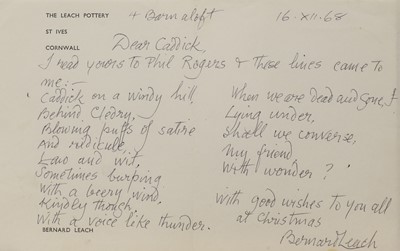 THE LEACH POTTERY
ST IVES
CORNWALL
4 Barnaloft
16.XII.68
Dear Caddick,
I read yours to Phil Rogers & these lines came to
me:—
Caddick on a windy hill
Behind Cledry,
Blowing puffs of satire
And redicule,
Law and wit,
Sometimes burping
With a beery wind.
Kindly though
With a voice like thunder.
When we are Dead and Gone,
Lying under,
Shall we converse,
My friend
With wonder?
With good wishes to you all
at Christmas
Bernard Leach
BERNARD LEACH